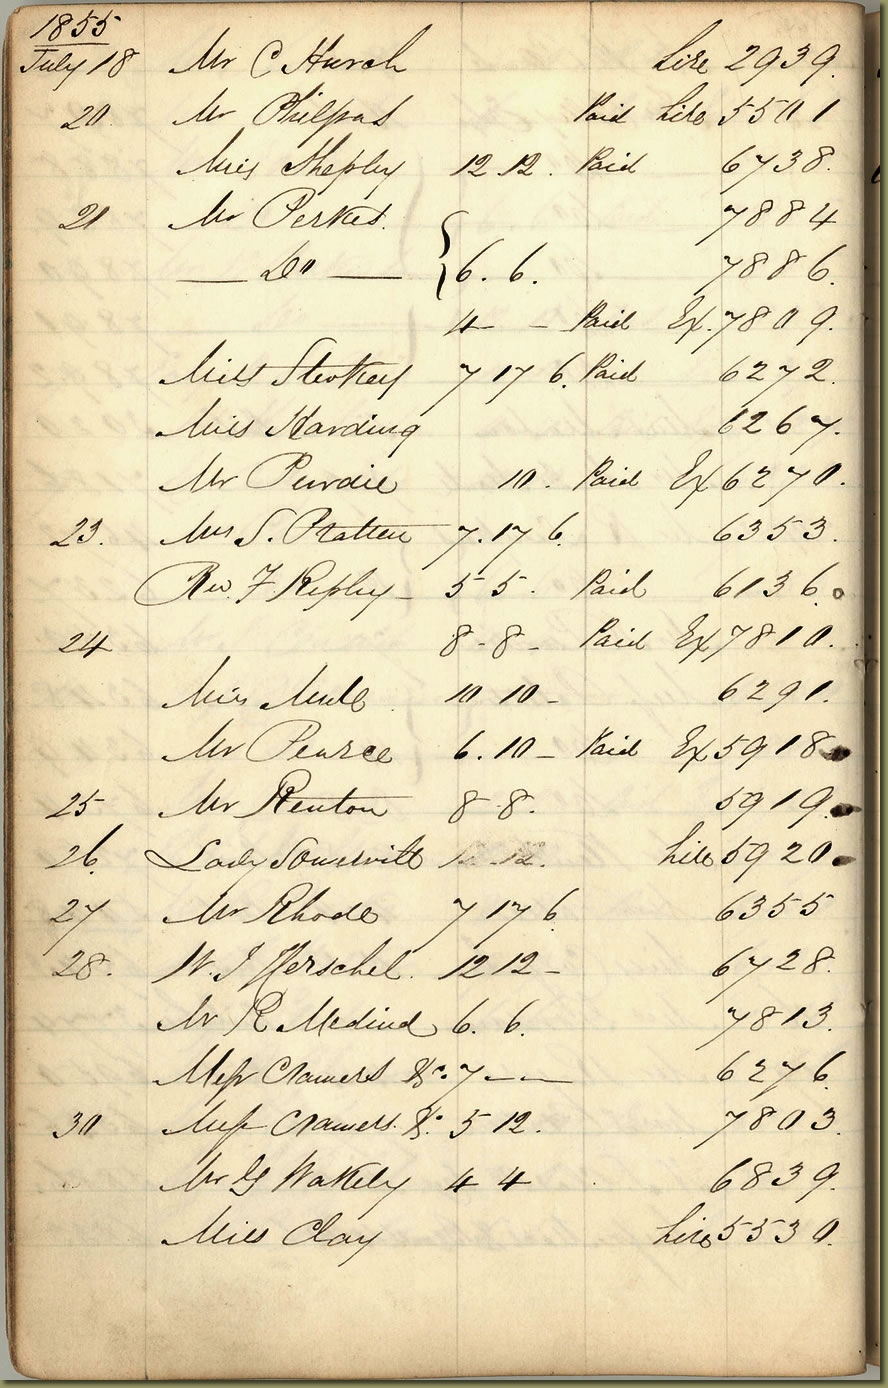 1855
July 18 Mr C Hurch hire 2939.
20. Mr Philpot Paid hire 5501
Miss Shepley 12 12. Paid 6738.
21 Mr Perkes. 7884
— Do — 6. 6. 7886.
4 - - Paid Ex. 7809.
Miss 7 17 6. Paid 6272.
Miss Harding 6267.
Mr Purdie 10. Paid Ex 6270.
23. Mrs S. Pratten 7. 17 6. 6353.
Rev. F Repley 5 5. Paid 6136.
24 8 - 8 - Paid Ex 7810.
Miss 10 10 - 6291.
Mr Pearce 6. 10 - Paid Ex 5918
25 Mr Renton 8 8. 5919.
26. Lady Somerville 12 12. hire 5920.
27 Mr Rhode 7 17 6. 6355
28. W. J Herschel. 12 12 - 6728.
Mr R Medina 6. 6. 7813.
Messr Cramers &c. 7 - - 6276.
30 Messr Cramers. &c. 5 12. 7803.
Mr G Wakely 4 4 6839.
Miss Clay hire 5530.